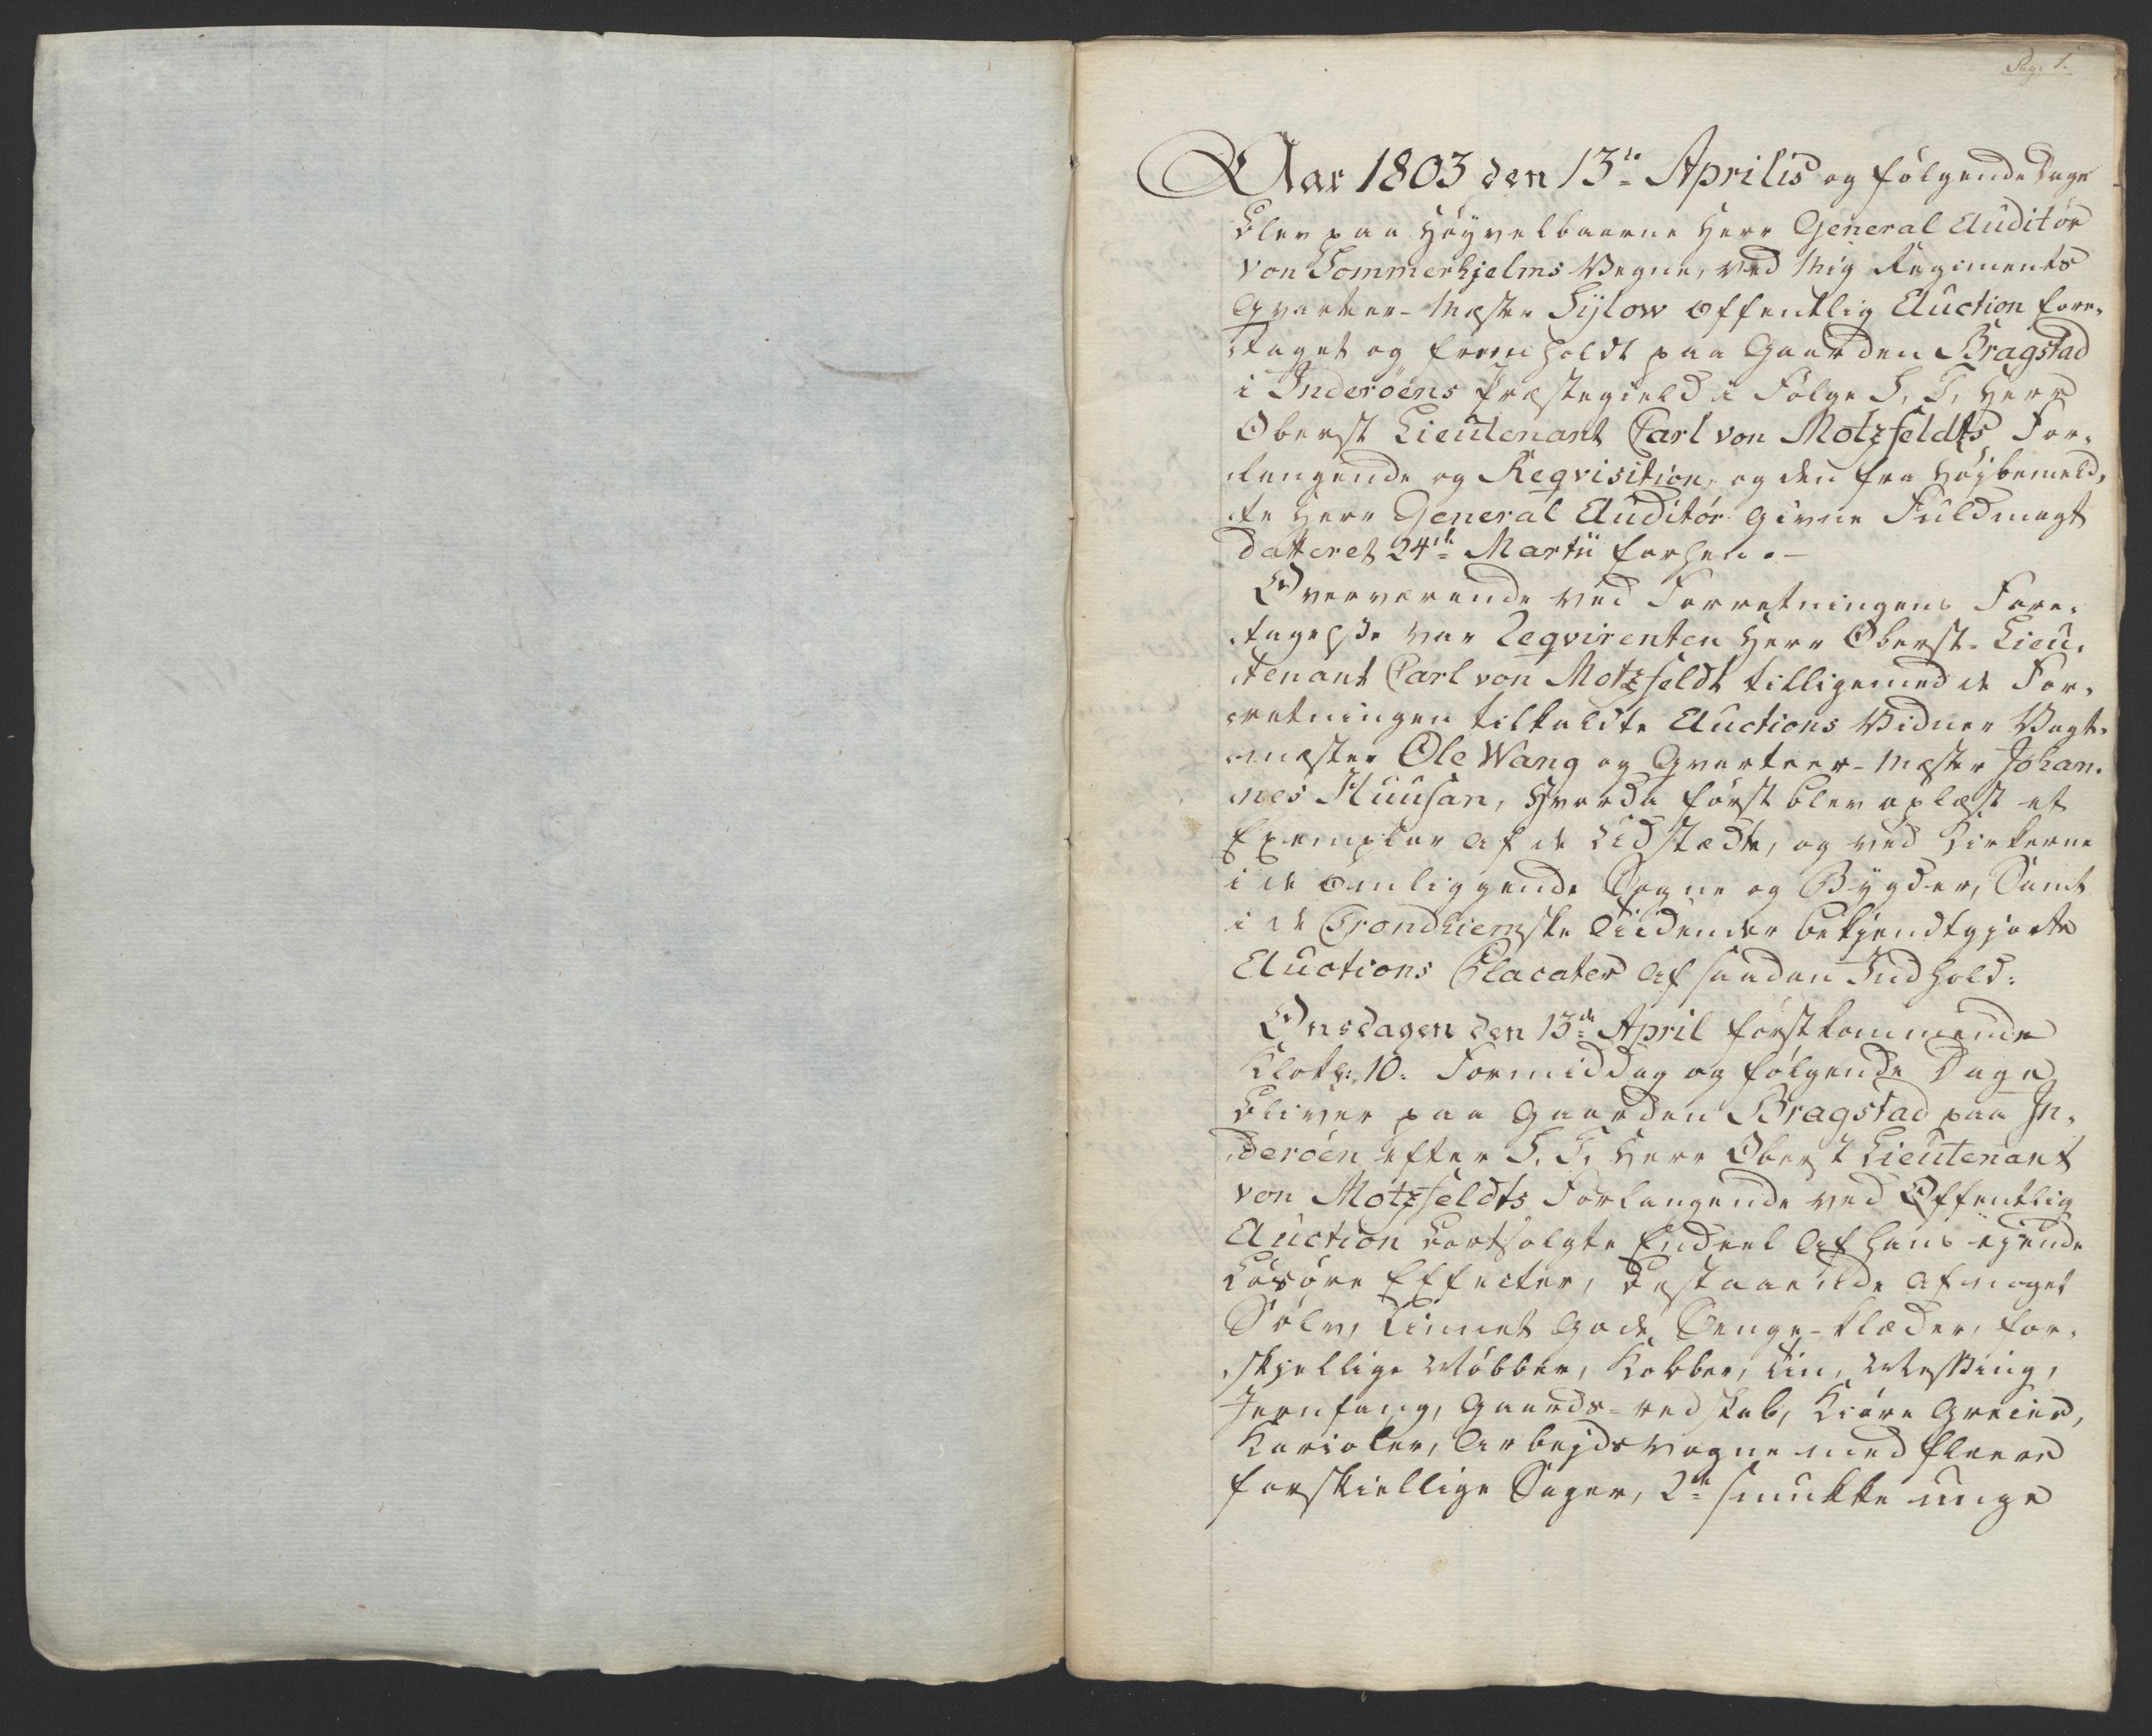 Pag: 1.
Aar 1803 den 13de Aprilis og følgende Dage
blev paa Høyvelbaarne Herr General Auditør
von Sommerhjelms Vegne, ved Mig Regiments
Qvarteer-Mæster Sylow offentlig Auction fore-
taget og fremholdt paa Gaarden Bragstad
i Inderöens Præstegield i Følge S. T. Herr
Oberst Lieutenant Carl von Motzfeldts For-
langende og Reqvisition, og den fra Høybemeld-
te Herr General Auditør givne Fuldmagt
datteret 24de Martii forhen.-
Overværende ved Forretningens Fore-
tagelße var Reqvirenten Herr Oberst-Lieu-
tenant Carl von Motzfeldt tilligemed de For-
retningen tilkaldte Auctions Vidner Vagt-
mæster Ole Wang og Qvarteer-Mæster Johan-
nes Huusan, hvorda først blev oplæst et
Exemplar af de Udstædte, og ved Kirkerne
i de omliggende Sogne og Bygder, Samt
i de Trondhiemske Tiidender bekjendtgjorte
Auctions Placater af saadan Indhold:
Onsdagen den 13de April førstkommende
Klokk: 10. Formiddag og følgende Dage
bliver paa Gaarden Bragstad paa In-
deröen efter S. T. Herr Oberst Lieutenant
von Motzfeldts Forlangende ved Offentlig
Auction bortsolgte Endeel af hans ejende
Løsøre Effecter, bestaaende af noget
Sølv, Linnet gode Senge-klæder, for-
skjellige Møbber, Kobber, Tin, Meßing,
Jernfang, Gaards-redskab, Kiøre Greier,
Karioler, Arbejdsvogne med fleere
forskiellige Sager, 2de smukke unge